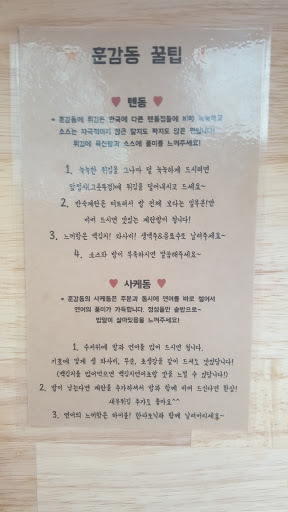 훈감동 꿀팁
♥ 텐동 ♥
* 훈감동에 튀김은 한국에 다른 텐동점들에 비해 눅눅하고
소스는 자극적이지 않은 달지도 짜지도 않은 편입니다!
튀김에 육신함과 소스에 풍미를 느껴주세요!
1. 눅눅한 튀김을 그나마 덜 눅눅하게 드시려면
앞접시(그릇뚜껑)에 튀김을 덜어내시고 드세요~
2. 반숙계란은 터트려서 밥 전체 보다는 일부분만
비벼 드시면 맛있는 계란밥이 됩니다!
3. 느끼함은 백김치! 와사비! 생맥주&음료수로 날려주세요~
4. 소스와 밥이 부족하시면 말씀해주세요~
♥ 사케동 ♥
* 훈감동의 사케동은 주문과 동시에 연어를 바로 썰어서
연어의 풍미가 가득합니다. 정성들인 숯밥으로~
밥알이 살아있음을 느껴주세요!
1. 숟가락에 밥과 연어를 많이 드시면 됩니다.
기호에 맞게 생 와사비, 무순, 초생강을 같이 드셔도 맛있답니다!
(백김치을 얹어먹으면 백김치연어초밥 맛을 느낄 수 있답니다!)
2. 밥이 남는다면 계란을 추가하셔서 밥과 함께 비벼 드신다면 환상!
새우튀김 추가도 좋아요^^
3. 연어의 느끼함은 하이볼! 한라토닉과 함께 날려버리세요~